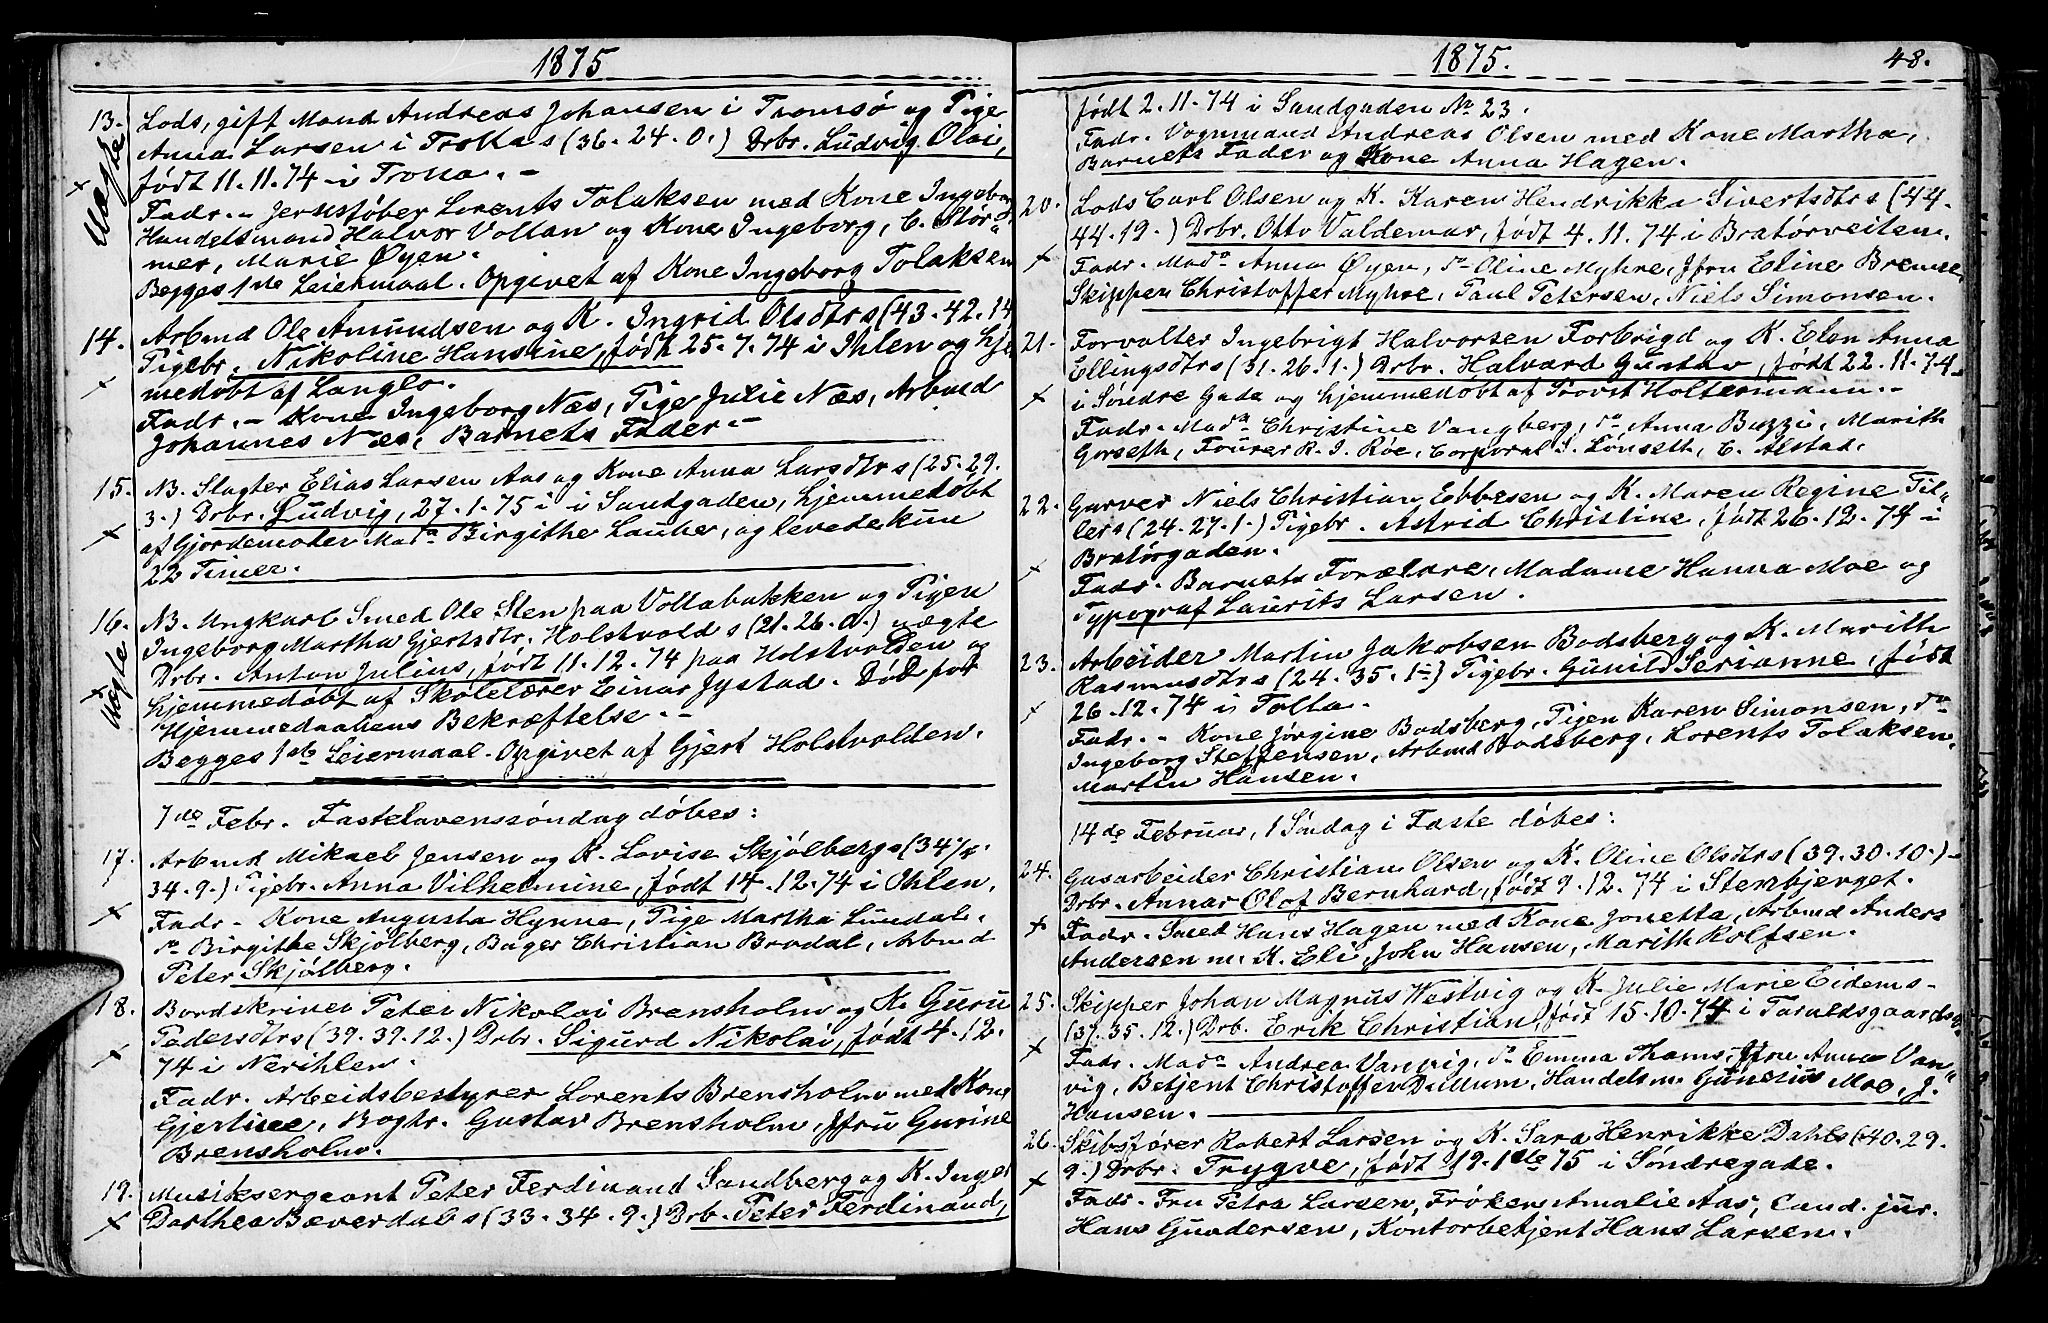 1875
13. Lods, gift Mand Andreas Johansen i Tromsø og Pige
Uægte
Anna Larsen i Trolla s (36. 24. 0.) Drbr. Ludvig Olai,
født 11. 11. 74 i Trolla. -
Fadr. - Jernstøber Lorents Tolaksen med Kone Ingeborg
Handelsmand Halvor Vollan og Kone Ingeborg, C. Stør-
mer, Marie Øyen.
Begges 1ste Leiermaal. Opgivet af Kone Ingeborg Tolaksen
14. Arbmd Ole Amundsen og K. Ingrid Olsdtr s (43. 42. 14
Pigebr. Nikoline Hansine, født 25. 7. 74 i Ihlen og hje
medøbt af Langlo.
Fadr. - Kone Ingeborg Næs, Pige Julie Næs, Arbmd
Johannes Næs, Barnets Fader. -
15. NB. Slagter Elias Larsen Aas og Kone Anna Larsdtr s (25. 29.
3.) Drbr. Ludvig, 27. 1. 75 i i Sandgaden, hjemmedøbt
af Gjordemoder Mada Birgithe Lauber, og levede kun
22 Timer.
16. NB. Ungkarl Smed Ole Sten paa Vollabakken og Pigen
Uægte
Ingeborg Martha Gjertsdtr. Holstvold s (21. 26. 0.) uægte
Drbr. Anton Julius, født 11. 12. 74 paa Holstvolden og
hjemmedøbt af Skolelærer Einar Jystad. Død før
Hjemmedaabens Bekræftelse. -
Begges 1ste Leiermaal. Opgivet af Gjert Holstvolden.
7de Febr. Fastelavenssøndag døbes:
17. Arbmd Mikael Jensen og K. Lovise Skjølberg s (34
34. 9.) Pigebr. Anna Vilhelmine, født 14. 12. 74 i Ihlen.
Fadr - Kone Augusta Hynne, Pige Martha Lundal.
do Birgithe Skjølberg, Bager Christian Brodal, Arbmd
Peter Skjølberg.
18. Bordskriver Peter Nikolai Brensholm og K. Guru
Pedersdtr s (39. 39. 12.) Drbr. Sigurd Nikolai, født 4. 12.
74 i Nerihlen.
Fadr. Arbeidsbestyrer Lorents Brensholm med Kone
Gjertine, Bogtr. Gustav Brensholm, Jfru Gurine
Brensholm.
19. Musiksergeant Peter Ferdinand Sandberg og K. Inger
Dorthea Bæverdahl s (33. 34. 9.) Drb. Peter Ferdinand,
1875.
48.
født 2. 11. 74 i Sandgaden No 23.
Fadr. Vognmand Andreas Olsen med Kone Martha,
Barnets Fader og Kone Anna Hagen.
20. Lods Carl Olsen og K. Karen Hendrikke Sivertsdtr s (44.
44. 19.) Drbr. Otto Valdemar, født 4. 11. 74 i Bratørveiten.
Fadr. Mada Anna Øyen, do Oline Myhre, Jfru Eline Bremse
Skipper Christoffer Myhre, Paul Petersen, Niels Simonsen.
21. Forvalter Ingebrigt Halvorsen Forbrigd og K. Elen Anna
Ellingsdtr s (31. 26. 1.) Drbr. Halvard Gustav, født 22. 11. 74
i Søndre Gade og hjemmedøbt af Provst Holtermann. -
Fadr. Mada Christine Vangberg, do Anna Buzzi, Marith
Gorseth, Fourer R. I. Røe, Corporal I. Lønseth, C. Alstad.
22. Garver Niels Christian Ebbesen og K. Maren Regine Til-
ler s (24. 27. 1.) Pigebr. Astrid Christine, født 26. 12. 74 i
Bratørgaden.
Fadr. Barnets Forældre, Madame Hanna Moe og
Typograf Laurits Larsen.
23. Arbeider Martin Jakobsen Bodsberg og K. Marith
Rasmusdtr s (24. 35. 1-) Pigebr. Gunild Serianne, født
26. 12. 74 i Tolla.
Fadr. - Kone Jørgine Bodsberg, Pigen Karen Simonsen, do
Ingeborg Steffensen, Arbmd Bodsberg, Lorents Tolaksen,
Martin Hansen.
14de Februar, 1 Søndag i Faste døbes:
24. Gasarbeider Christian Olsen og K. Oline Olsdtr s (39. 30. 10.) -
Drbr. Annar Olof Bernhard, født 9. 12. 74 i Stenbjerget.
Fadr. Smed Hans Hagen med Kone Jonetta, Arbmd Anders
Andersen m. K. Eli, John Hansen, Marith Rolfsen.
25. Skipper Johan Magnus Westvig og K. Julie Marie Eidem s -
(37. 35. 12.) Drb. Erik Christian, født 15. 10. 74 i Taraldsgaards
Fadr. Mada Andrea Vanvig, do Emma Thams, Jfru Anna Van-
vig, Betjent Christoffer Dullum, Handelsm. Gunelius Moe, J.
Hansen.
26. Skibsfører Robert Larsen og K. Sara Henrikke Dahl s (40. 29.
9.) Drbr. Trygve, født 19. 1de 75 i Søndregade.
Fadr. Fru Petra Larsen, Frøken Amalie Aas, Cand. jur.
Hans Gundersen, Kontorbetjent Hans Larsen.